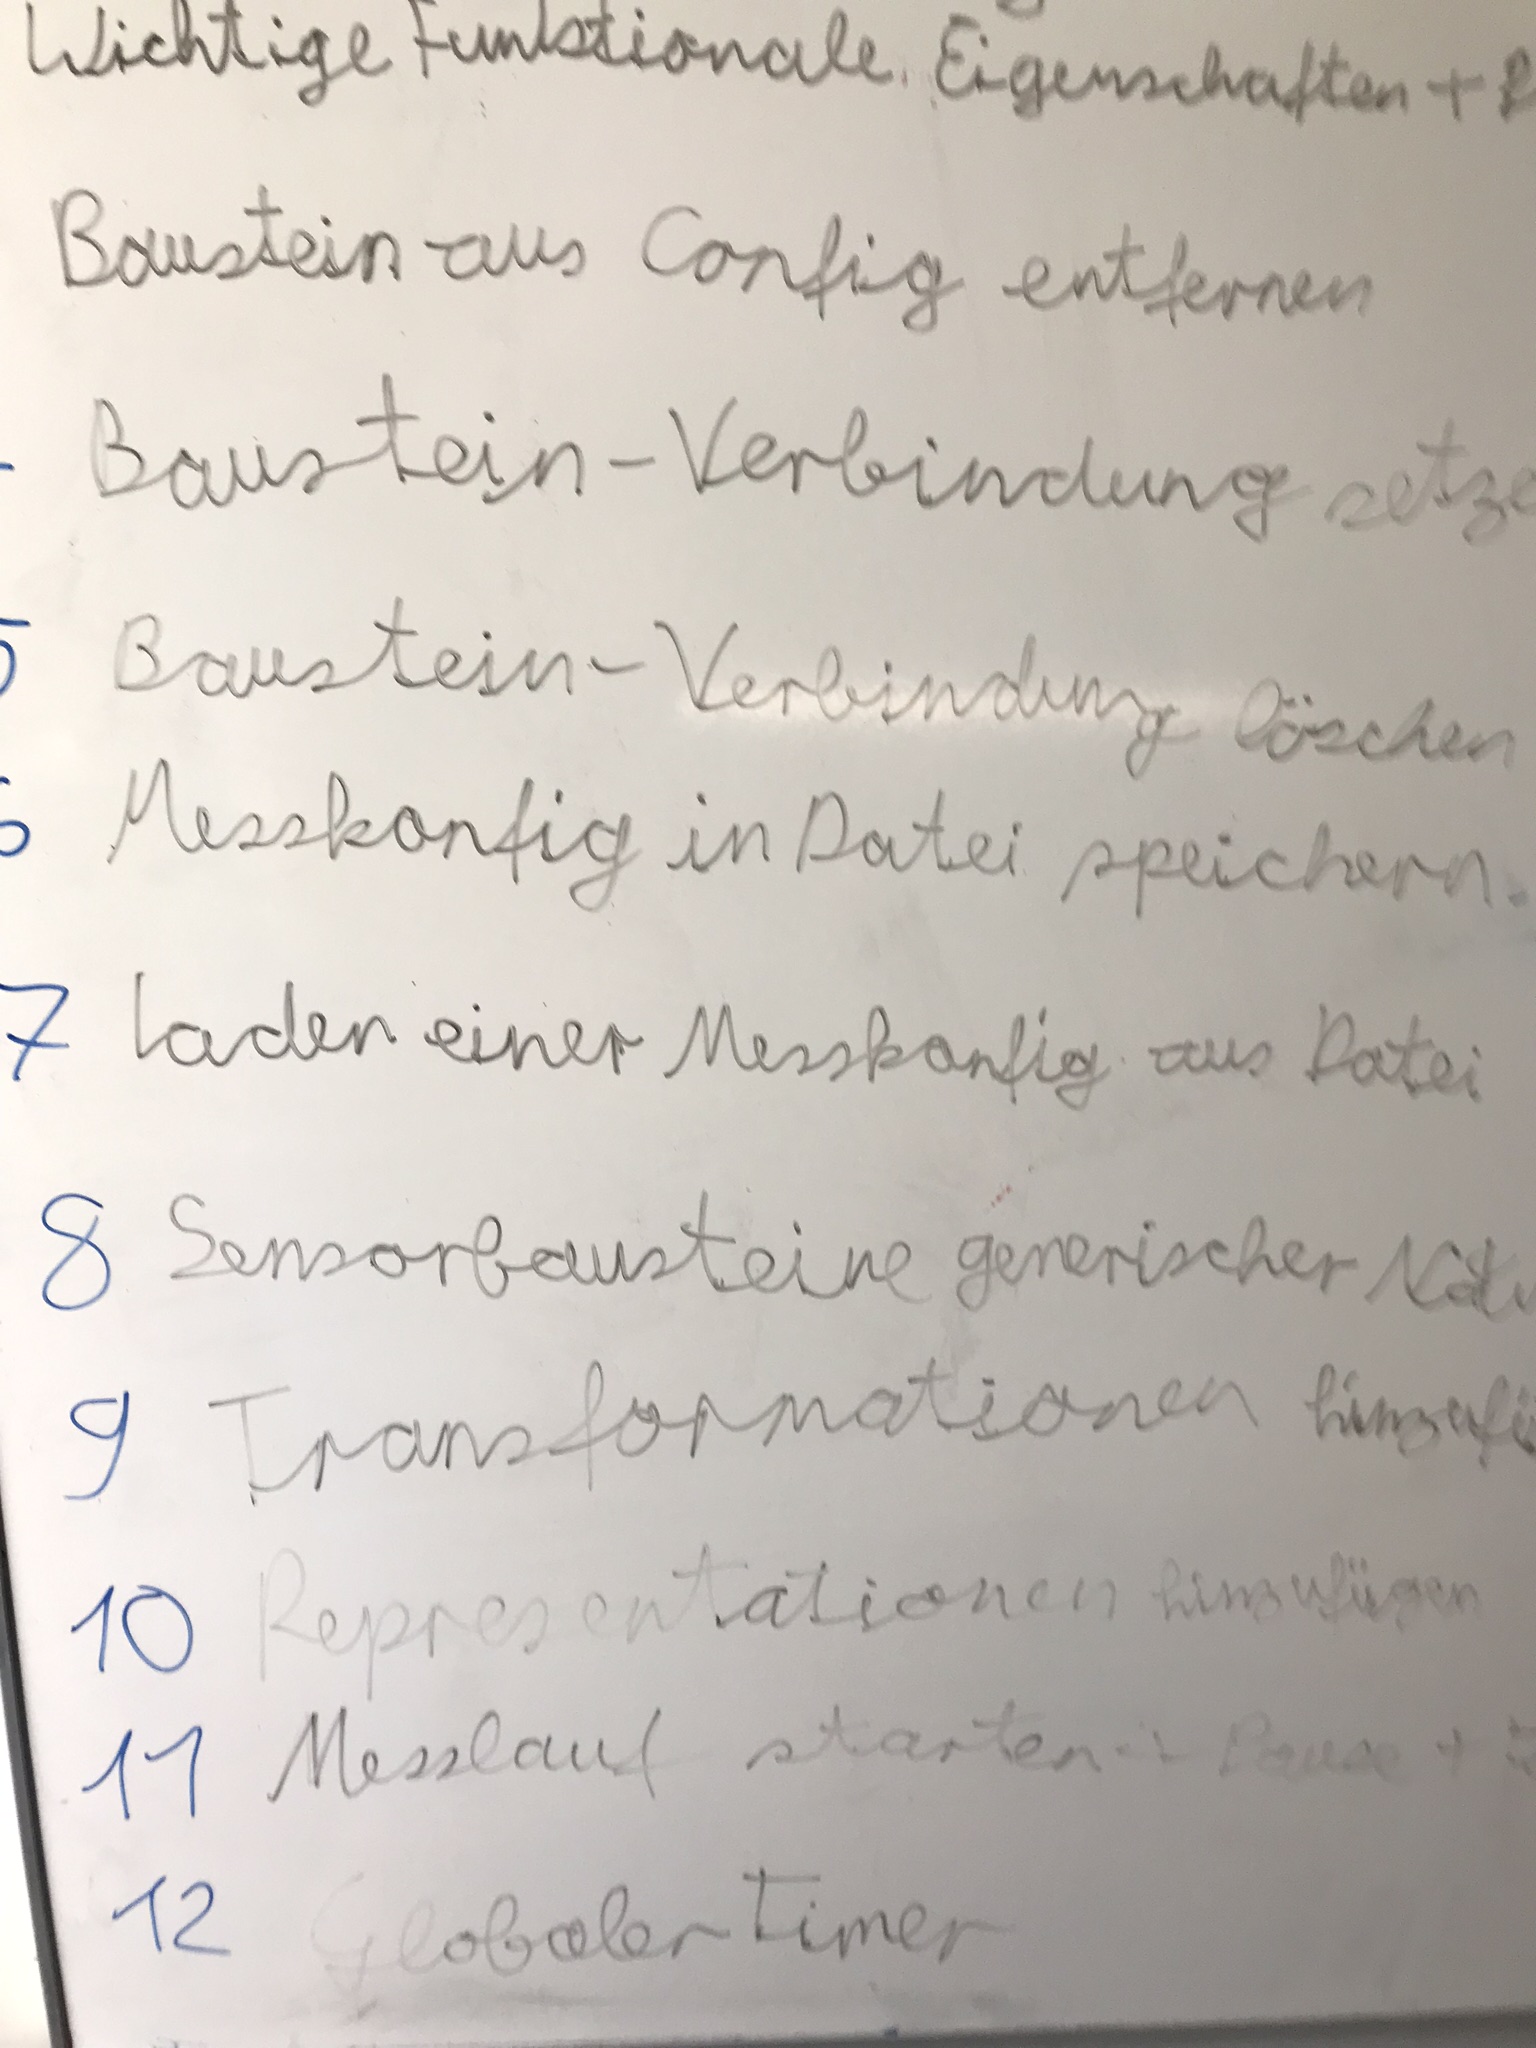 Wichtige Funktionale Eigenschaften +
Baustein aus Config entfernen
Baustein-Verbindung setze
5 Baustein-Verbindung löschen
6 Messkonfig in Datei speichern.
7 Laden einer Messkonfig aus Datei
8 Sensorbausteine generischer
9 Transformationen hinzufü
10 Representationen hinzufügen
11 Messlauf starten + Pause +
12 Globaler Timer